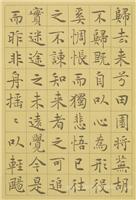 歸去来兮田園將蕪胡
不歸既自以心為形役
奚惆悵而獨悲悟已往
之不諫知来者之可追
實迷途其未遠覺今是
而昨非舟搖搖以輕颺